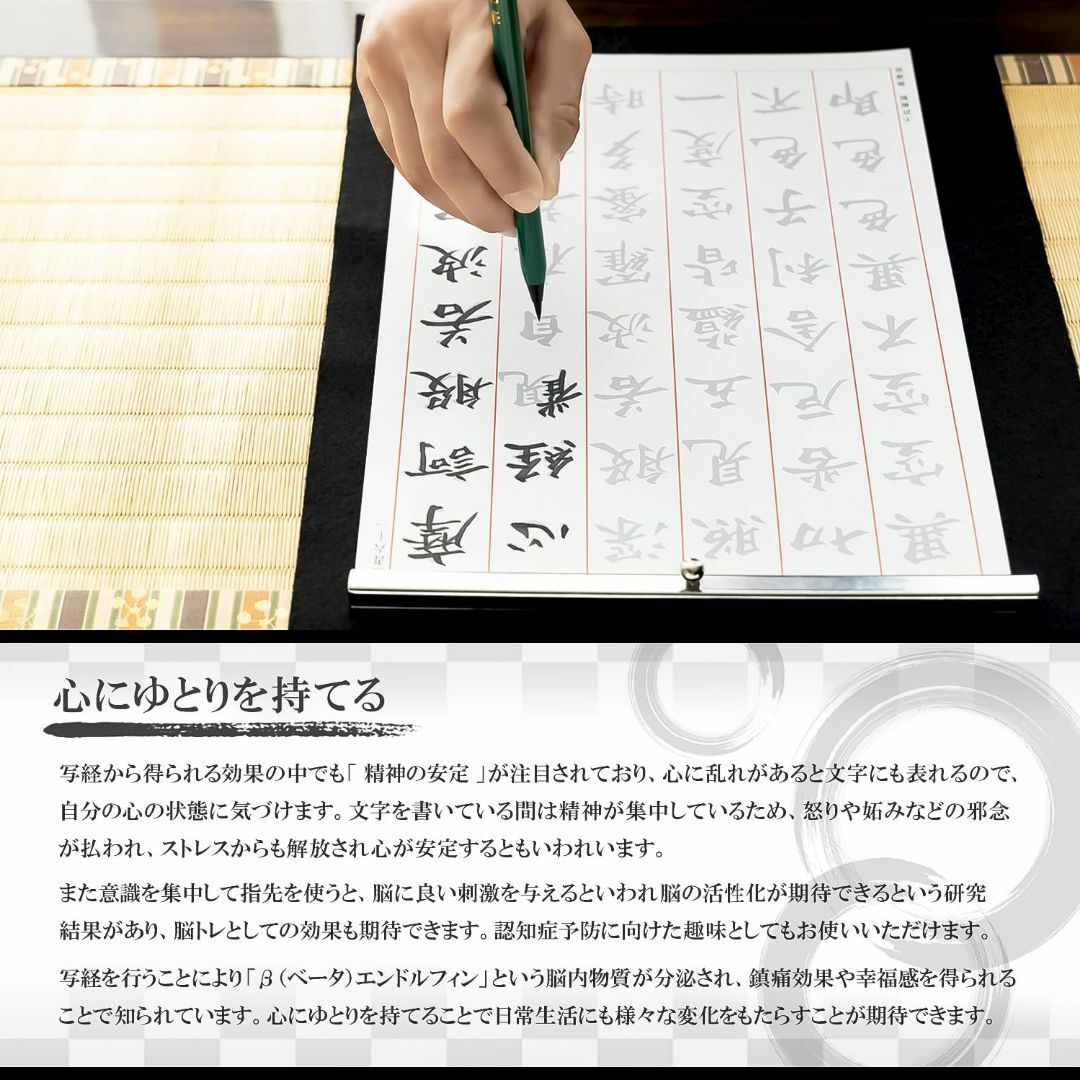 摩訶般若波
心経観自
深般若波羅蜜多時
照見五蘊皆空度一
切苦厄舎利子色不
異空空不異色色即
心にゆとりを持てる
写経から得られる効果の中でも「 精神の安定 」が注目されており、心に乱れがあると文字にも表れるので、
自分の心の状態に気づけます。文字を書いている間は精神が集中しているため、怒りや妬みなどの邪念
が払われ、ストレスからも解放され心が安定するともいわれいます。
また意識を集中して指先を使うと、脳に良い刺激を与えるといわれ脳の活性化が期待できるという研究
結果があり、脳トレとしての効果も期待できます。認知症予防に向けた趣味としてもお使いいただけます。
写経を行うことにより「β（ベータ）エンドルフィン」という脳内物質が分泌され、鎮痛効果や幸福感を得られる
ことで知られています。心にゆとりを持てることで日常生活にも様々な変化をもたらすことが期待できます。